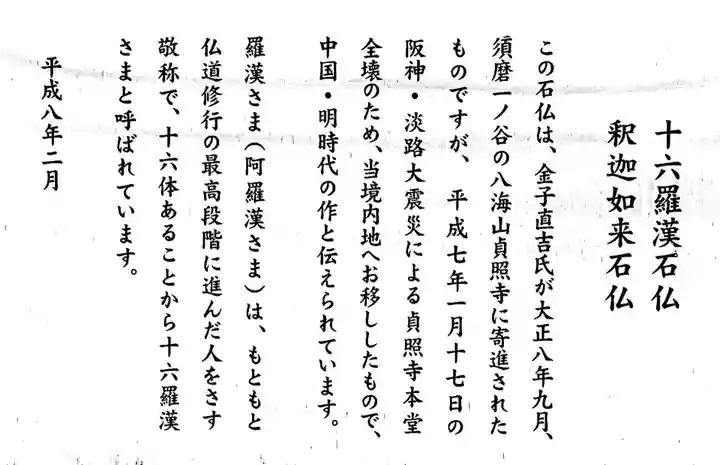 十六羅漢石仏
釈迦如来石仏
この石仏は、金子直吉氏が大正八年九月、
須磨一ノ谷の八海山貞照寺に寄進された
ものですが、平成七年一月十七日の
阪神・淡路大震災による貞照寺本堂
全壊のため、当境内地へお移ししたもので、
中国・明時代の作と伝えられています。
羅漢さま（阿羅漢さま）は、もともと
仏道修行の最高段階に進んだ人をさす
敬称で、十六体あることから十六羅漢
さまと呼ばれています。
平成八年二月